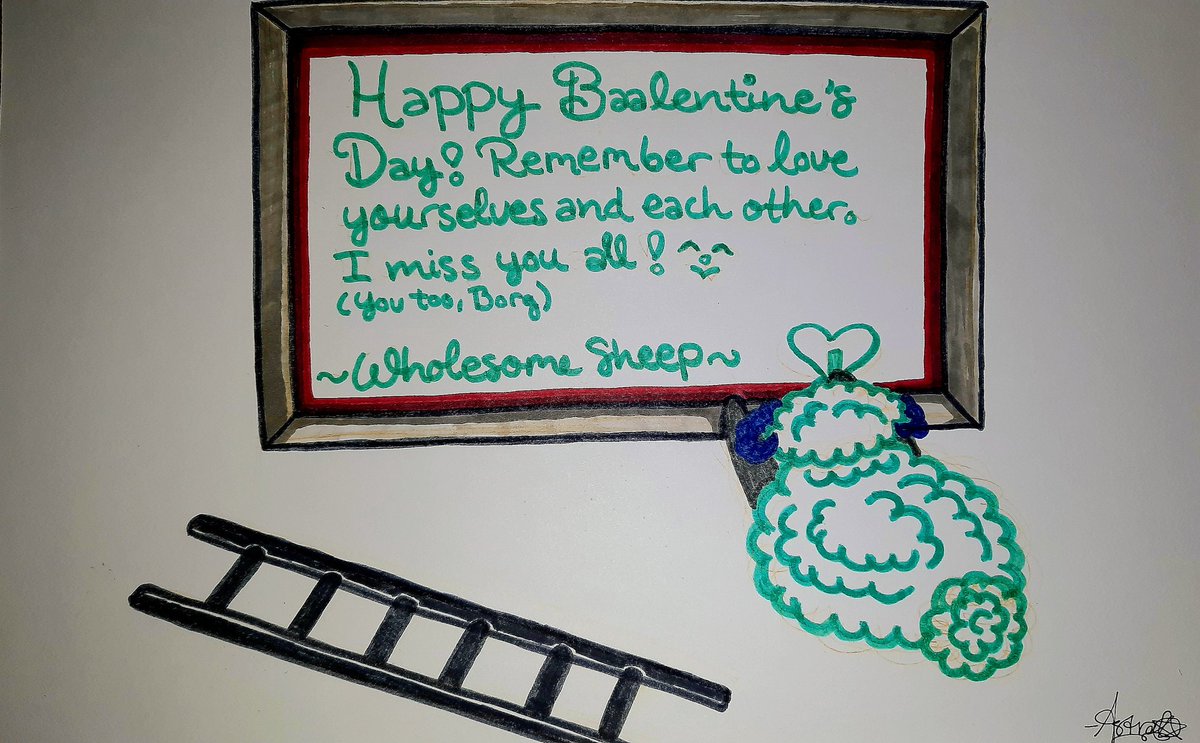 Happy Baalentine's
Day! Remember to love
yourselves and each other.
I miss you all!
(You too, Borg)
~Wholesome Sheep~